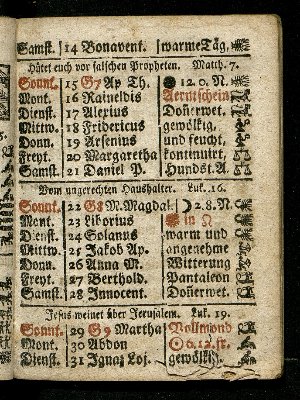 Samst. 14 Bonavent. warme Täg,
Hütet euch vor falschen Propheten. Matth. 7.
Sonnt. 15 G7 Ap Th. 12. 0. N.
Mont. 16 Raineldis Aerntschein
Dienst. 17 Alexius Doñerwet.
Mittw. 18 Fridericus gewölkig,
Donn. 19 Arsenius und feucht,
Freyt. 20 Margaretha kontinuirt,
Samst. 21 Daniel P. Hundst. A
Vom ungerechten Haushalter. Luk. 16.
Sonnt. 22 G8 M. Magdal. ☽ 2. 8. N.
Mont. 23 Liborius in ♌
Dienst. 24 Solanus warm und
Mittw. 25 Jakob Ap. angenehme
Donn. 26 Anna M. Witterung
Freyt. 27 Berthold. Pantaleon
Samst. 28 Innocent. Doñerwet.
Jesus weinet über Jerusalem. Luk. 19.
Sonnt. 29 G9 Martha Vollmond
Mont. 30 Abdon 6. 12. fr.
Dienst. 31 Ignaz Loj. gewölkig.